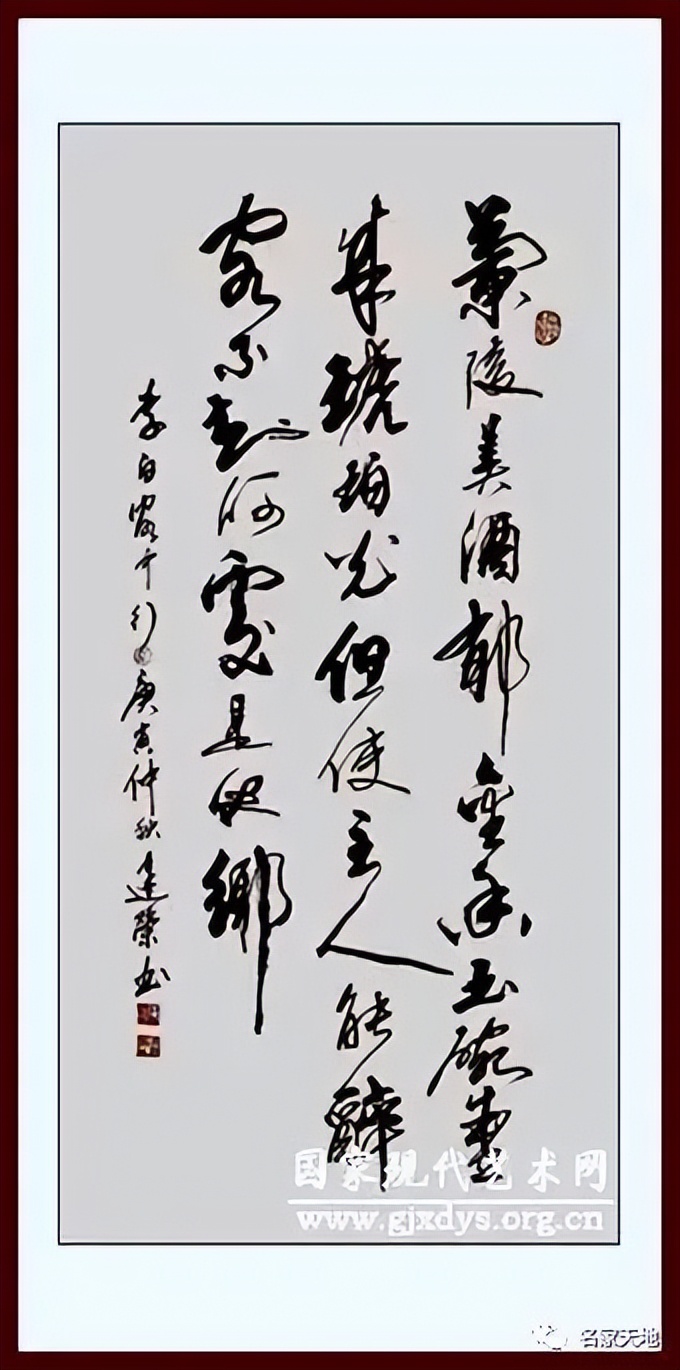 蘭陵美酒郁金香玉碗盛
来琥珀光但使主人能醉
客不知何處是他鄉
李白客中行 庚寅仲秋建榮书
国家现代艺术网
www.gjxdys.org.cn
名家天地